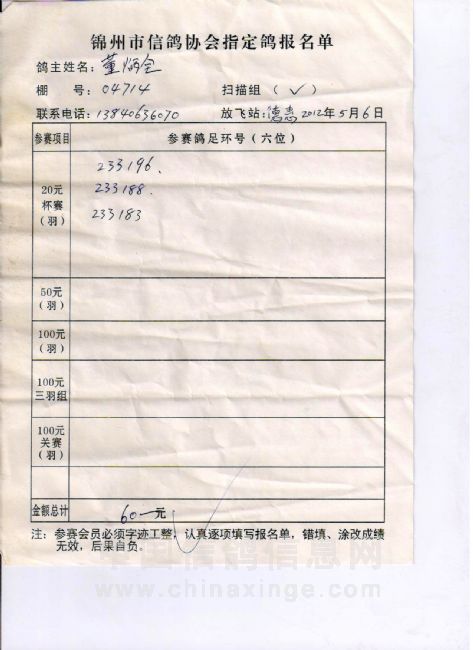 锦州市信鸽协会指定鸽报名单
鸽主姓名：董炳全
棚 号：04714 扫描组（✓）
联系电话：13840636070 放飞站：德惠 2012年5月6日
参赛项目 参赛鸽足环号（六位）
20元
杯赛
（羽）
233196.
233188.
233183
50元
（羽）
100元
（羽）
100元
三羽组
100元
关赛
（羽）
金额总计 60一元
注：参赛会员必须字迹工整，认真逐项填写报名单，错填、涂改成绩
无效，后果自负。
中国信鸽信息网
www.chinaxinge.com